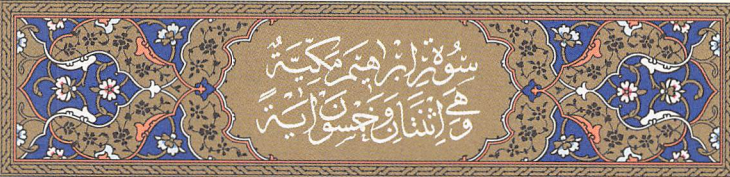 سُورَةُ اِبْرٰهِيمَ مَكِّيَّةٌ
وَهِيَ اِثْنَتَانِ وَخَمْسُونَ اٰيَةً